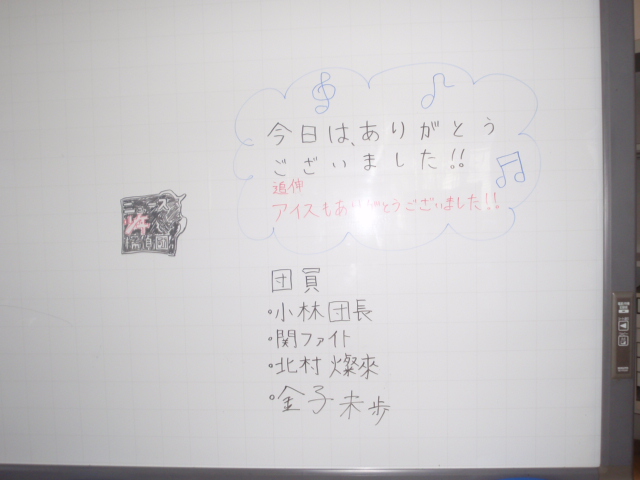 今日は、ありがとう
ございました!!
追伸
アイスもありがとうございました!!
ニュース
少年
探偵団
団員
・小林団長
・関ファイト
・北村燦來
・金子未歩